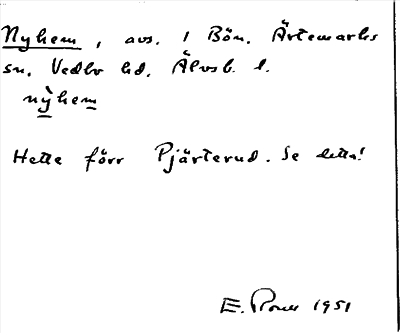 Nyhem, avs. i Bön, Ärtemarks
sn, Vedbo hd, Älvsb. l.
nỳhem
Hette förr Pjärterud. Se detta!
E. 1951